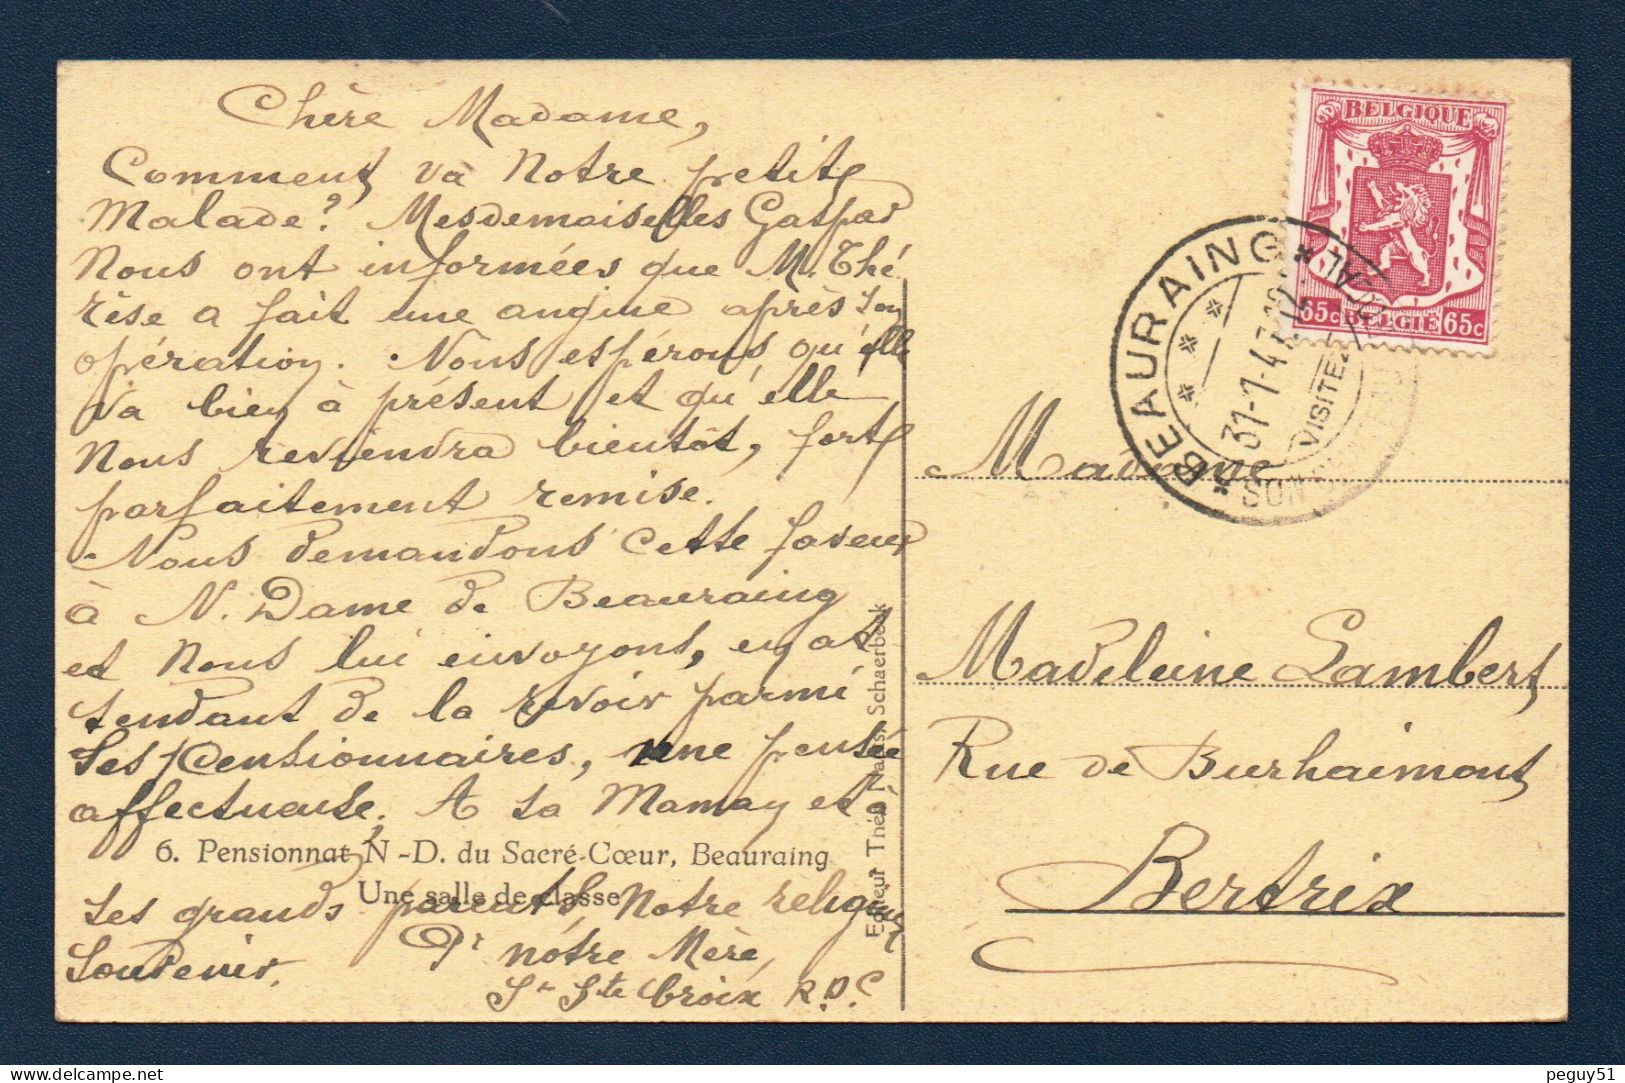 Chère Madame,
Comment va Notre petite
Malade? Mesdemoiselles Gaspar
Nous ont informées que M. Thé
rèse a fait une angine après son
opération. Nous espérons qu'elle
va bien à présent et qu'elle
Nous reviendra bientôt, forte
parfaitement remise.
Nous demandons cette faveur
à N. Dame de Beauraing
et Nous lui envoyons, en at
tendant de la revoir parmi
ses Pensionnaires, une pensée
affectueuse. A sa Maman et à
6. Pensionnat N.-D. du Sacré-Cœur, Beauraing
Une salle de classe
ses grands parents, Notre religieux
souvenir.
Pr nôtre Mère,
Sr Ste Croix R.D.C.
Editeur Théo Schaerbeek
BELGIQUE
65c BELGIE 65c
BEAURAING
31-1-47
VISITEZ
SON
Madame
Madeleine Lambert
Rue de Burhaimont
Bertrix
peguy51